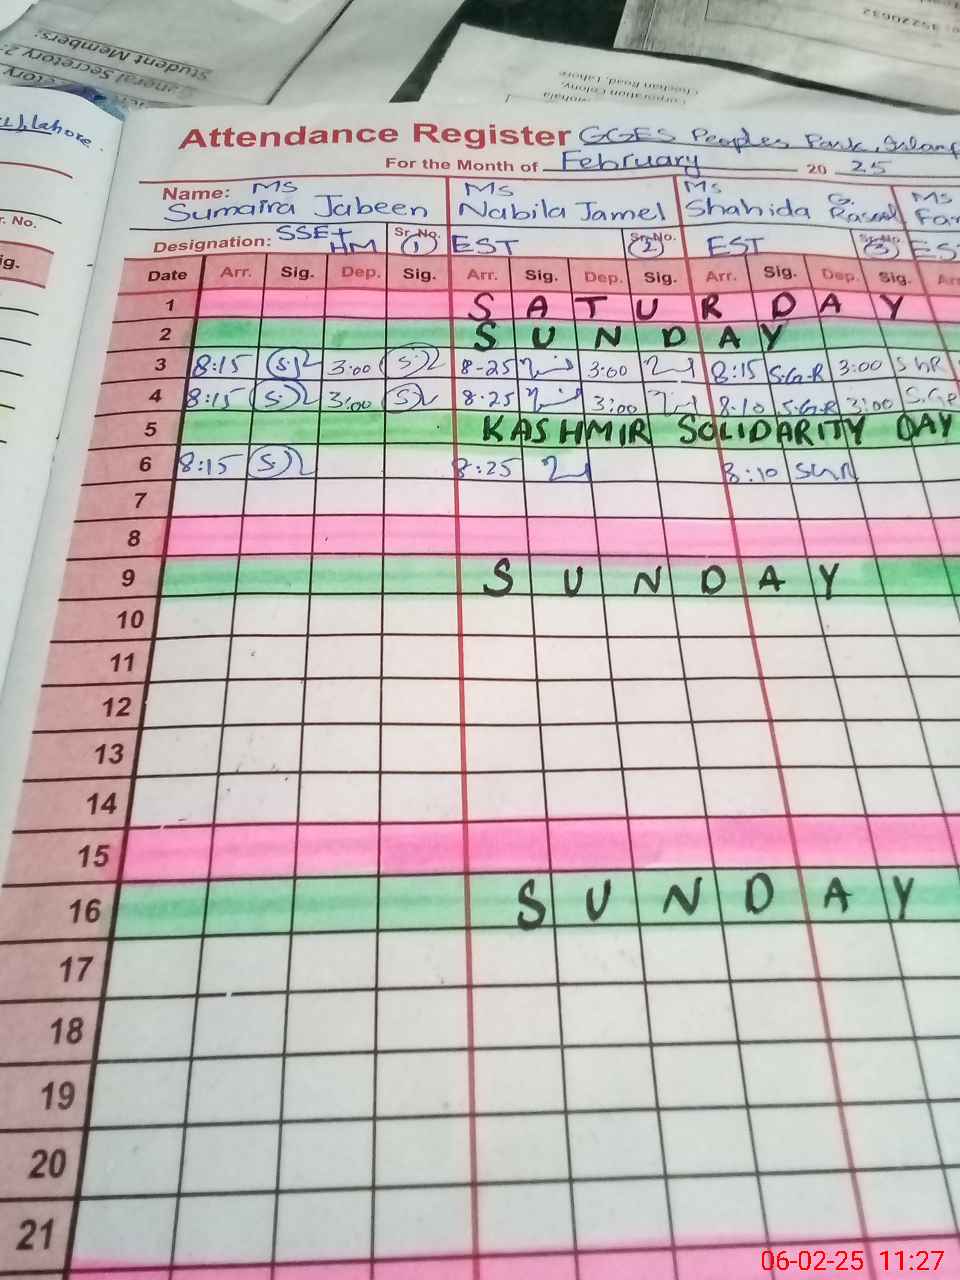 Student Members:
General Secretary 2:
35220632
Corporation Colony,
Chochan Road, Lahore
Lahore.
r. No.
ig.
Attendance Register GGES Peoples Park,
For the Month of February 20 25
Name: MS Sumaira Jabeen MS Nabila Jamel MS Shahida G. Rasool MS
Designation: SSE+HM Sr. No. 1 EST Sr. No. 2 EST Sr. No. 3
Date Arr. Sig. Dep. Sig. Arr. Sig. Dep. Sig. Arr. Sig. Dep. Sig. Arr
1 SATURDAY
2 SUNDAY
3 8:15 3:00 8-25 3:00 8:15 S.G.R 3:00 ShR
4 8:15 3:00 8.25 3:00 8.10 S.G.R 3:00
5 KASHMIR SOLIDARITY DAY
6 8:15 8:25 8:10 ShR
7
8
9 SUNDAY
10
11
12
13
14
15
16 SUNDAY
17
18
19
20
21
06-02-25 11:27